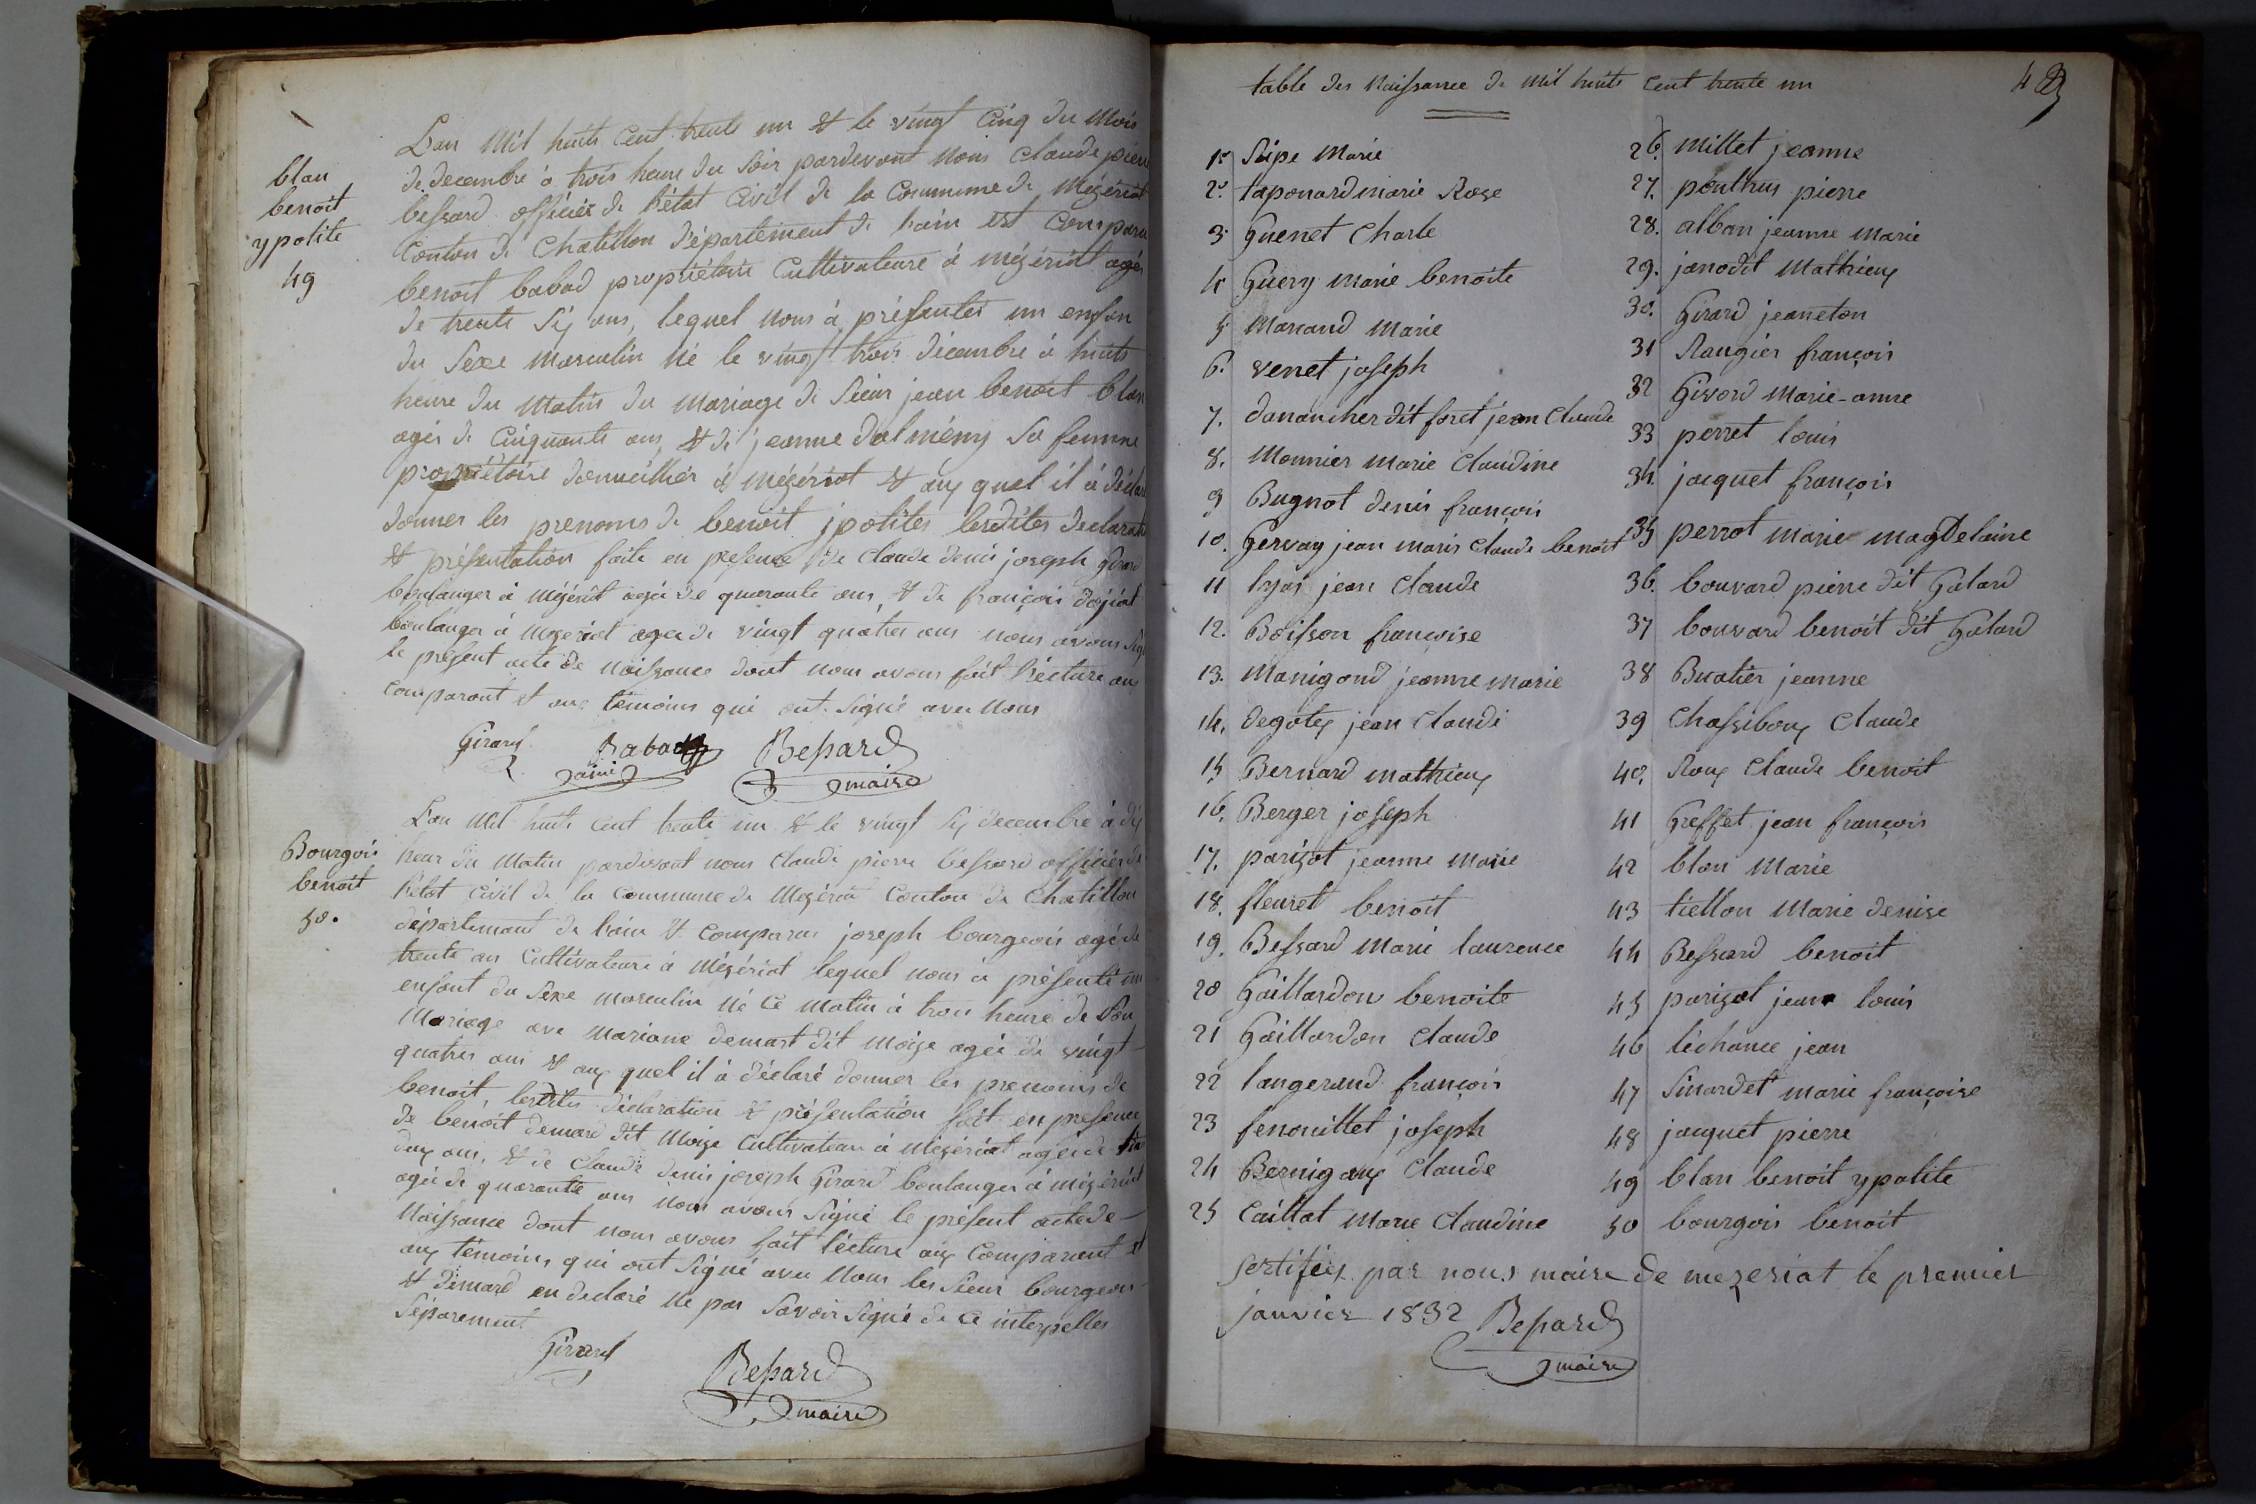 blan
benoit
ypolite
49
L'an mil huit cent trente un & le vingt cinq du mois
de decembre à trois heure du soir pardevant nous claude pierre
bessard officier de l'état civil de la commune de mézériat
canton de chatillon département de l'ain est comparu
benoit babad propriétaire cultivateure à mézériat agé
de trente six ans, lequel nous à présenté un enfan
du sexe masculin né le vingt trois décembre à huits
heure du matin du mariage de sieur jean benoit blan
agés de cinquante ans, & de jeanne dalmény sa femme
propriétaire à mézériat & auquel il à déclaré
donner les prenoms de benoit jpolites lesdites declaration
& présentation faite en presence de claude denis joseph girard
boulanger à mézériat agé de quarante ans, & de françois
boulanger à mézériat agé de vingt quatres ans nous avons signé
le présent acte de naissance dont nous avons fait lécture au
comparant et aux témoins qui ont signé avec nous
Girard Babad Bessard
maire
Bourgois
benoit
50.
L'an mil huits cent trente un & le vingt six decembre à dix
heur du matin pardevant nous claude pierre bessard officier de
l'état civil de la commune de mézériat canton de chatillon
département de l'ain & comparus joseph bourgeois agé de
trente ans cultivateure à mézériat lequel nous a présenté un
enfant du sexe masculin né ce matin à trois heure de son
mariage avec mariane demard dit moize agée de vingt
quatres ans & auquel il à déclaré donner les prenoms de
benoit, lesdites déclaration & présentation fait en presence
de benoit demard dit moize cultivateur à mézériat agé de
deux ans, & de claude denis joseph girard boulanger à mézériat
agé de quarante ans nous avons signé le présent acte de
naissance dont nous avons fait lécture aux comparant et
aux témoins qui ont signé avec nous les sieur bourgeois
& demard en déclaré ne pas savoir signé de ce interpelles
séparement
Girard
Bessard
maire
table des naissance de mil huits cent trente un
1er Supe marie
2. taponard marie Rose
3. Guenet Charle
4. Guery marie benoite
5. manand marie
6. venet joseph
7. danancher dit foret jean claude
8. Monnier marie claudine
9 Bugnot denis françois
10. Gervay jean maris claude benoit
11 lyas jean claude
12. Boisson françoise
13. Manigand jeanne marie
14. degotex jean claude
15 Bernard mathieu
16. Berger joseph
17. parizot jeanne marie
18. fleuret benoit
19. Bessard marie laurence
20 Gaillardon benoite
21 Gaillardon claude
22 langerand françois
23 fenouillet joseph
24 Bernigaux claude
25 Caillat marie claudine
26. millet jeanne
27. ponthus pierre
28. alban jeanne marie
29. janodit mathieu
30. Girard jeaneton
31 Raugier françois
32 Givord marie-anne
33 perret louis
34. jacquet françois
35 perrot marie magdelaine
36. bouvard pierre dit Galard
37 bouvard benoit dit Galard
38 Buatier jeanne
39 Chassiboux claude
40. Roux claude benoit
41 Greffet jean françois
42 blan marie
43 tiellon marie denise
44 Bessard benoit
45 parizot jean louis
46 léchance jean
47 Sinardet marie françoise
48 jacquet pierre
49 blan benoit ypolite
50 bourgois benoit
sertifiéz par nous maire de mezeriat le premier
janvier 1832 Bessard
maire